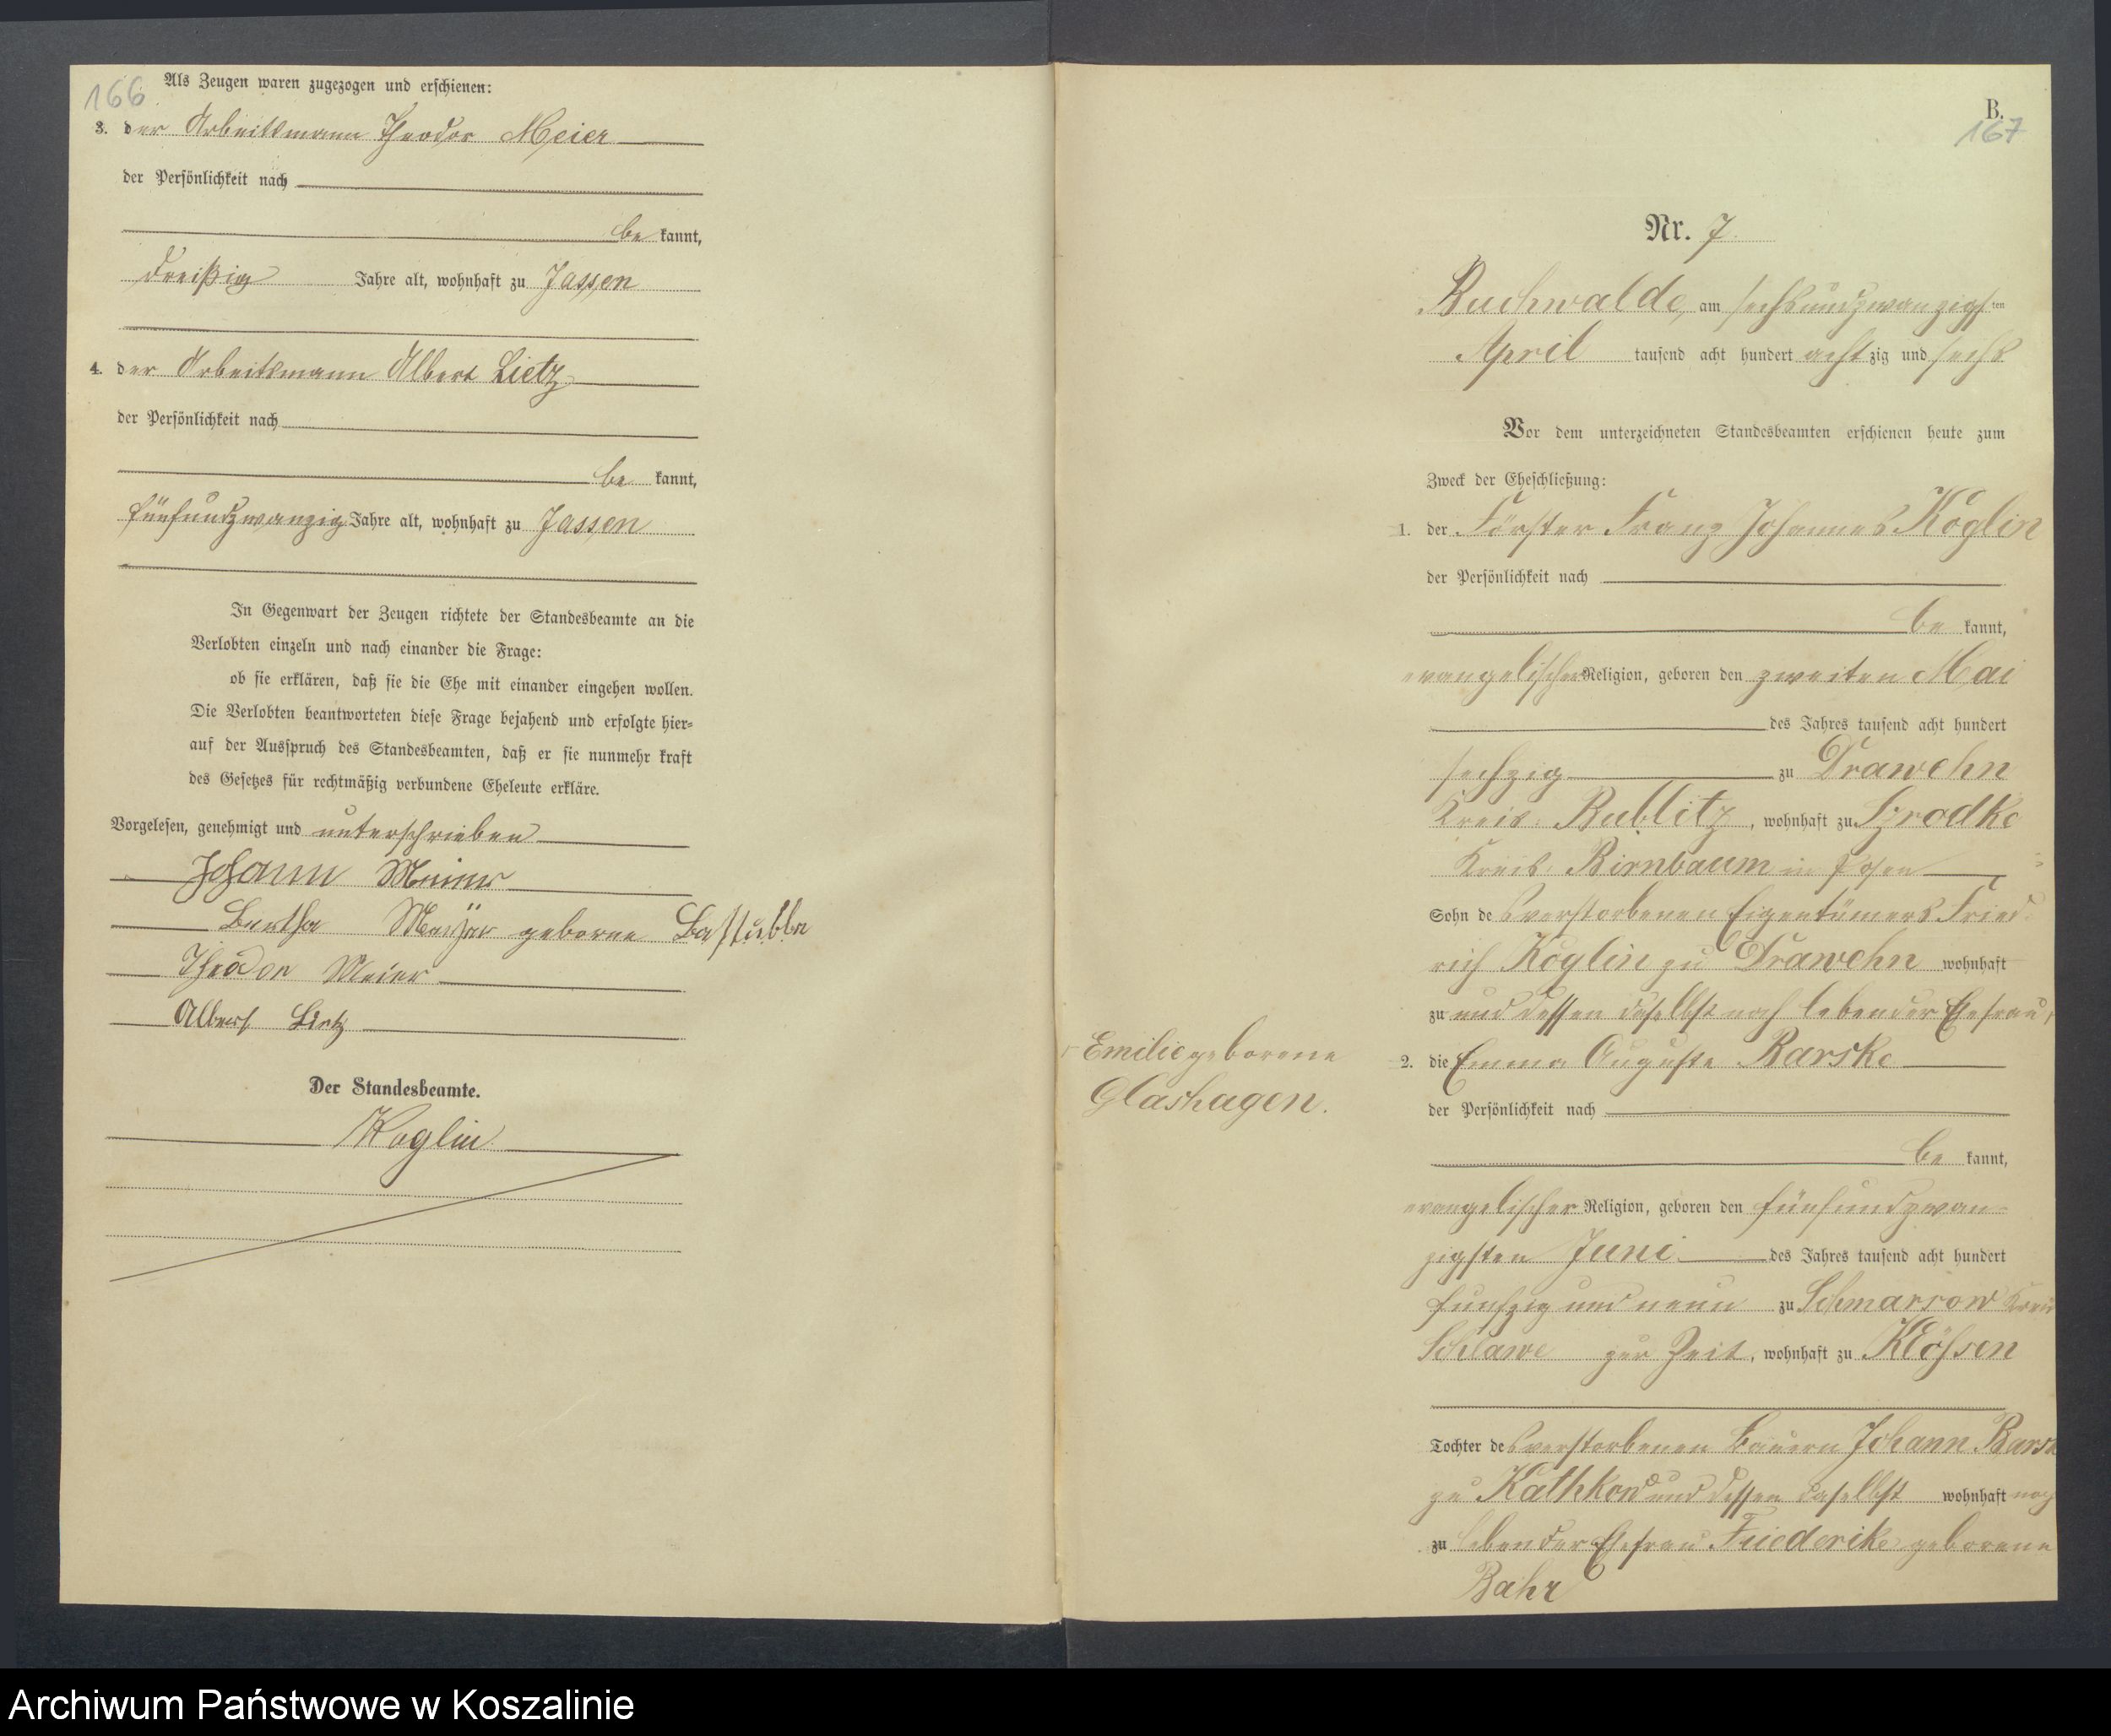 166
Als Zeugen waren zugezogen und erschienen:
3. der Arbeitsmann Theodor Meier
der Persönlichkeit nach
be kannt,
dreißig Jahre alt, wohnhaft zu Jassen
4. der Arbeitsmann Albert Lietz
der Persönlichkeit nach
be kannt,
fünfundzwanzig Jahre alt, wohnhaft zu Jassen
In Gegenwart der Zeugen richtete der Standesbeamte an die
Verlobten einzeln und nach einander die Frage:
ob sie erklären, daß sie die Ehe mit einander eingehen wollen.
Die Verlobten beantworteten diese Frage bejahend und erfolgte hier-
auf der Ausspruch des Standesbeamten, daß er sie nunmehr kraft
des Gesetzes für rechtmäßig verbundene Eheleute erkläre.
Vorgelesen, genehmigt und unterschrieben
Johann Meier
Bertha Meyer geborne Bastubbe
Theodor Meier
Albert Lietz
Der Standesbeamte.
Koglin
B.
167
Nr. 7
Buchwalde, am sechsundzwanzigsten
April tausend acht hundert achtzig und sechs
Vor dem unterzeichneten Standesbeamten erschienen heute zum
Zweck der Eheschließung:
1. der Förster Franz Johannes Koglin
der Persönlichkeit nach
be kannt,
evangelischer Religion, geboren den zweiten Mai
des Jahres tausend acht hundert
sechzig zu Drawehn
Kreis Bublitz, wohnhaft zu Szrodke
Kreis Birnbaum in Posen
Sohn des verstorbenen Eigentümers Fried-
rich Koglin zu Drawehn wohnhaft
zu und dessen daselbst noch lebender Ehefrau,
Emilie geborene
Glashagen.
2. die Emma Auguste Barske
der Persönlichkeit nach
be kannt,
evangelischer Religion, geboren den fünfundzwan-
zigsten Juni des Jahres tausend acht hundert
fünfzig und neun zu Schmarsow Kreis
Schlawe zur Zeit, wohnhaft zu Klößen
Tochter des verstorbenen Bauern Johann Barsk
zu Kathkow und dessen daselbst wohnhaft noch
zu lebender Ehefrau Friederike geborene
Bahr
Archiwum Państwowe w Koszalinie